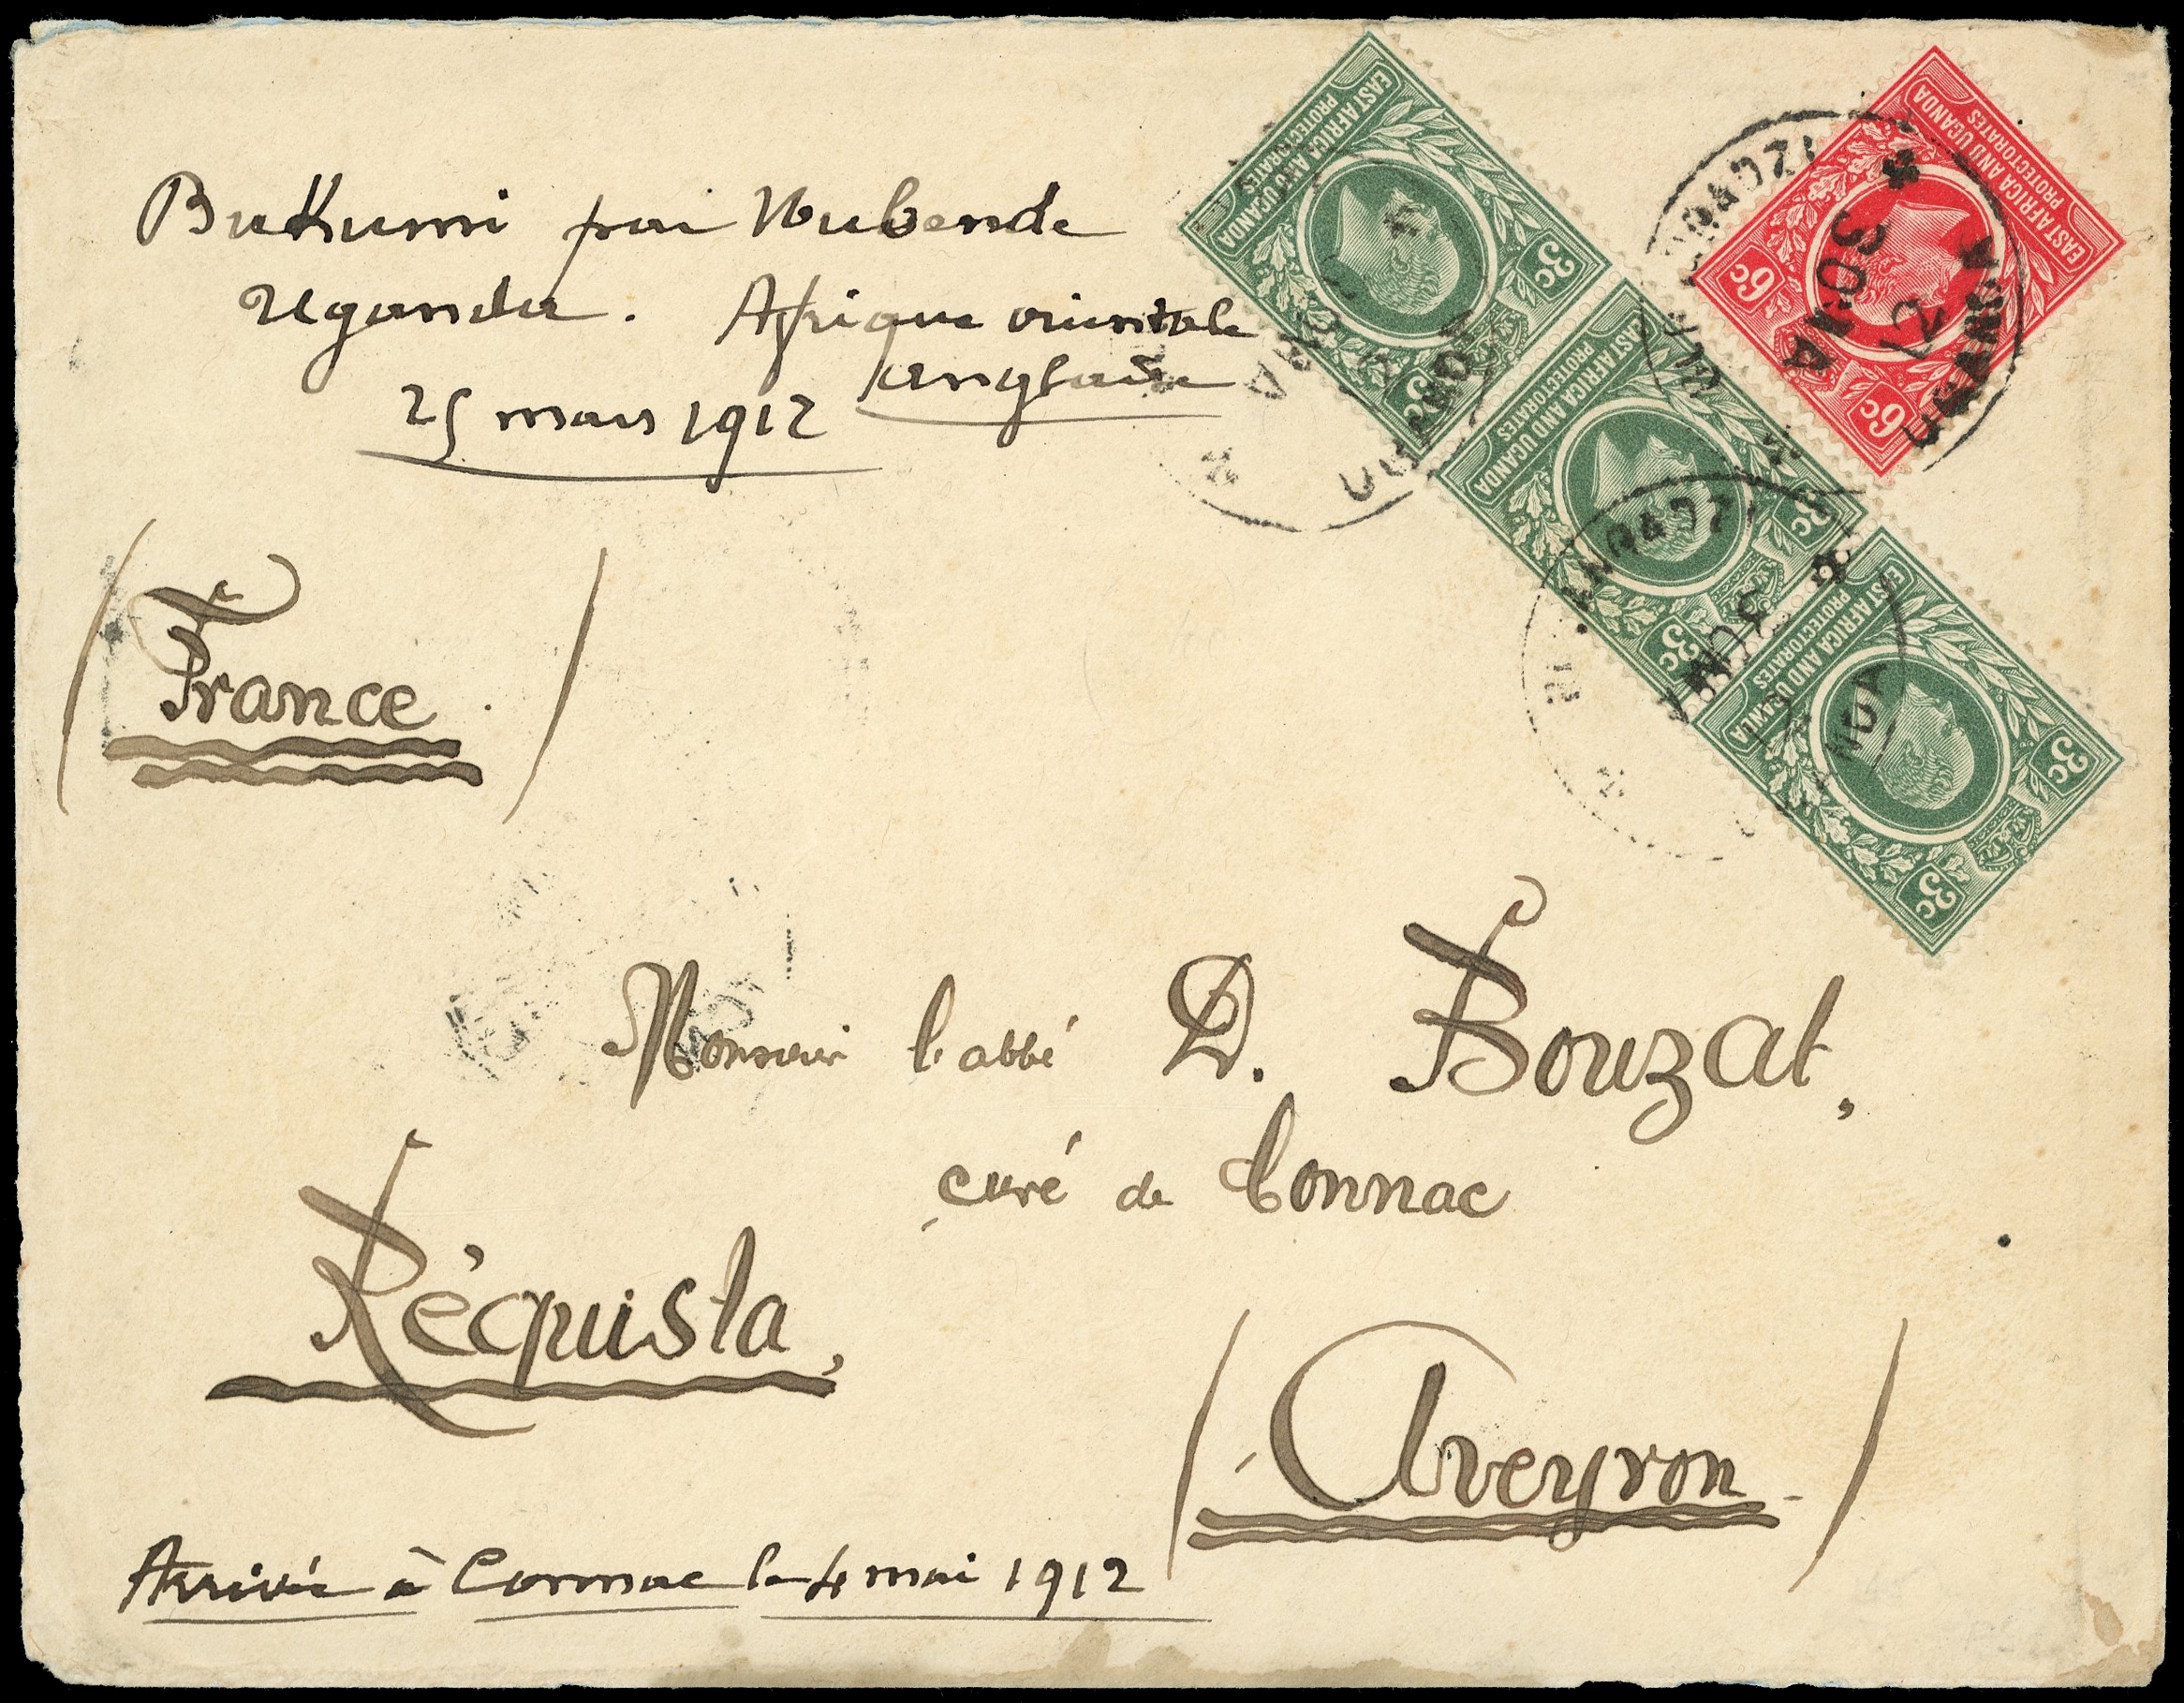 Bukumi par Mubende
Uganda. Afrique orientale
anglaise
25 mars 1912
(France.)
Monsieur l'abbé D. Bouzat,
curé de Connac
Réquista,
(Aveyron-)
Arrivée à Connac le 4 mai 1912
EAST AFRICA AND UGANDA
PROTECTORATES
3c 3c
EAST AFRICA AND UGANDA
PROTECTORATES
3c 3c
EAST AFRICA AND UGANDA
PROTECTORATES
3c 3c
EAST AFRICA AND UGANDA
PROTECTORATES
EAST AFRICA AND UGANDA
6c 6c
30 MA
12
UGANDA